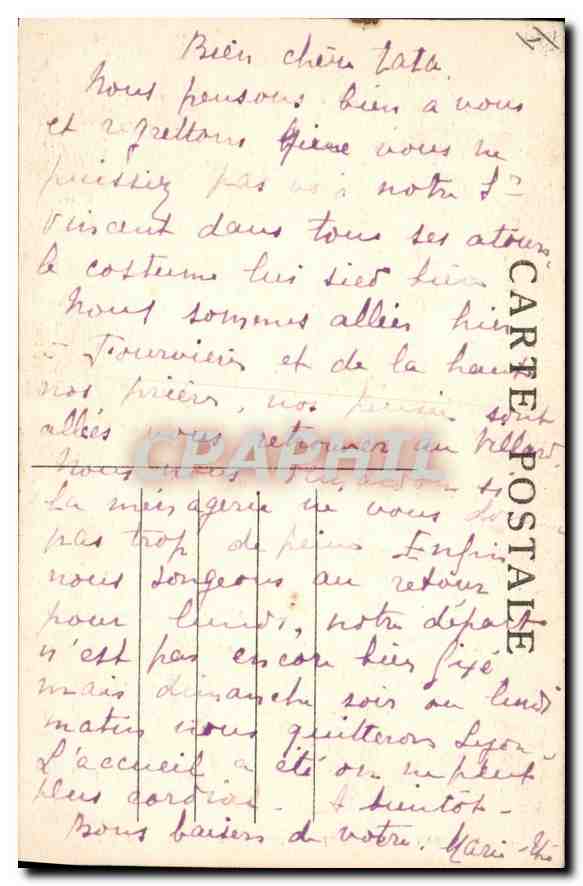 Bien chère tata.
Nous pensons bien a vous
et regrettons que vous ne
puissiez pas voir notre St
Vincent dans tous ses atours
le costume lui sied bien
Nous sommes allées hier
à Fourvières et de la haut
nos prières, nos pensées sont
allées vous retrouver au Villard.
Nous nous demandons si
la ménagerie ne vous donne
pas trop de peine Enfin
nous songeons au retour
pour lundi, notre départ
n'est pas encore bien fixé
mais dimanche soir ou lundi
matin nous quitterons Lyon
L'accueil a été on ne peut
plus cordial. A bientôt.
Bons baisers de votre. Marie
CARTE POSTALE
CPAPHIL